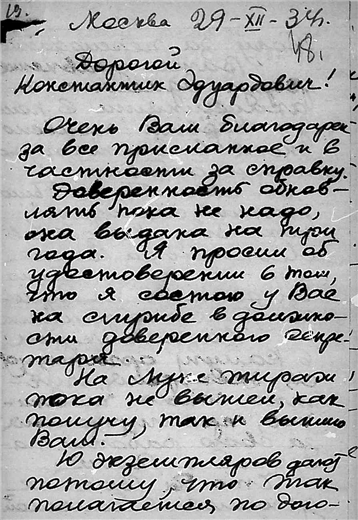 19.
Москва 29-XII-34.
48.
Дорогой
Константин Эдуардович!
Очень Вам благодарен
за все присланное и в
частности за справку.
Доверенность обнов-
лять пока не надо,
она выдана на три
года. Я просил об
удостоверении в том,
что я состою у Вас
на службе в должно-
сти доверенного секре-
таря.
На Луне тираж
пока не вышел, как
получу, так и вышлю
Вам.
10 экземпляров дают
потому, что так
полагается по дого-